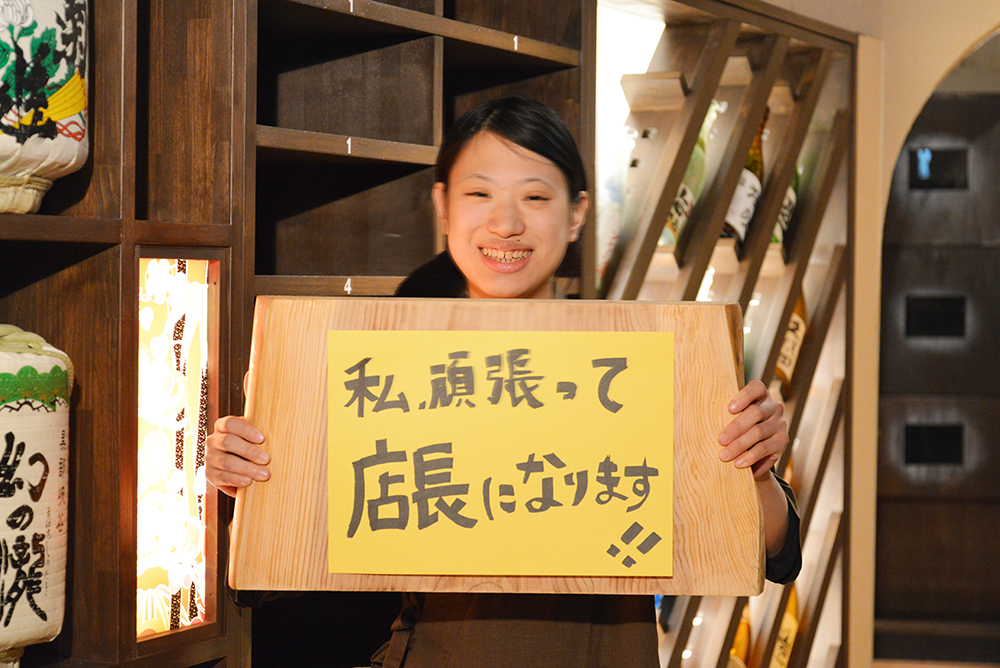 私、頑張って
店長になります
!!
1
1
4